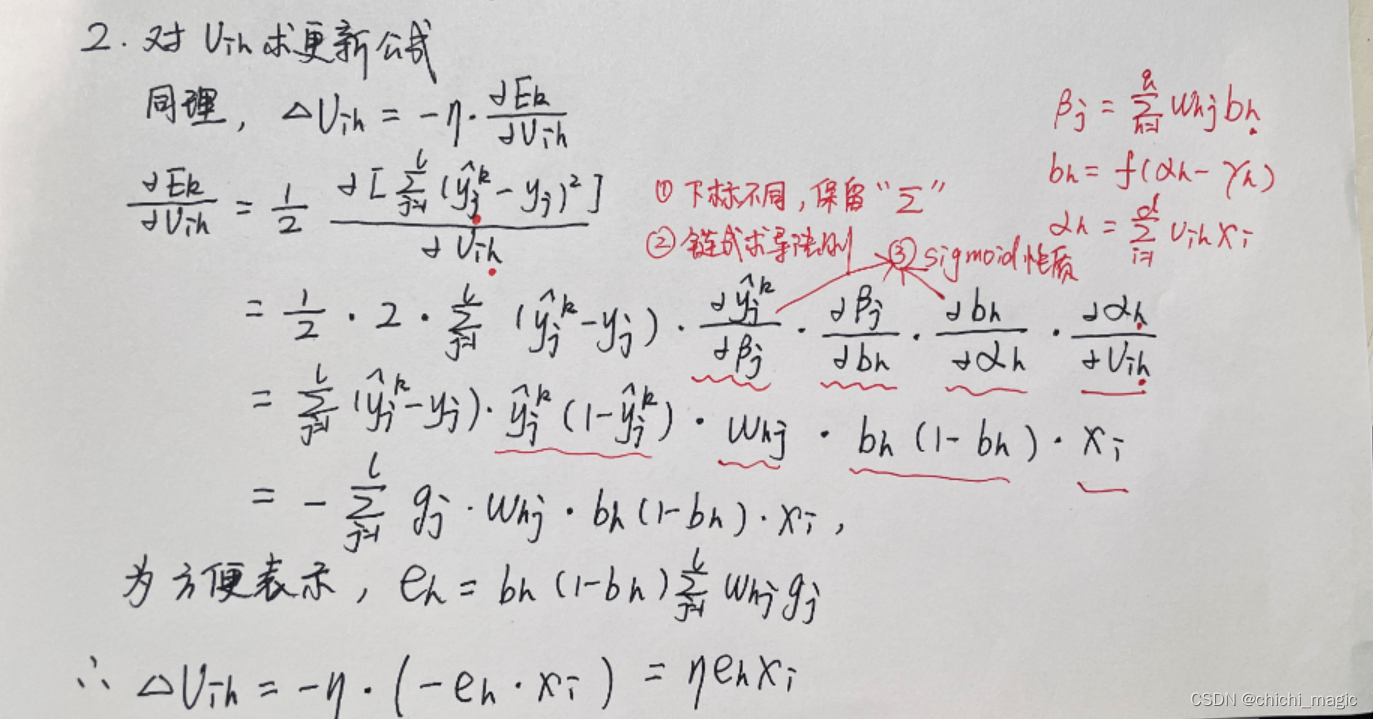 2. 对 Vih 求更新公式
同理, △Vih = -η · ∂Ek/∂Vih
βj = Σ(h=1→q) whj bh
bh = f(αh - γh)
αh = Σ(i=1→d) Vih xi
∂Ek/∂Vih = 1/2 ∂[Σ(j=1→l) (ŷj^k - yj)²]/∂Vih
① 下标不同, 保留“Σ”
② 链式求导法则 ③ sigmoid 性质
= 1/2 · 2 · Σ(j=1→l) (ŷj^k - yj) · ∂ŷj^k/∂βj · ∂βj/∂bh · ∂bh/∂αh · ∂αh/∂Vih
= Σ(j=1→l) (ŷj^k - yj) · ŷj^k (1 - ŷj^k) · whj · bh (1 - bh) · xi
= - Σ(j=1→l) gj · whj · bh (1 - bh) · xi ,
为方便表示, eh = bh (1 - bh) Σ(j=1→l) whj gj
∴ △Vih = -η · (-eh · xi) = ηehxi
CSDN @chichi_magic